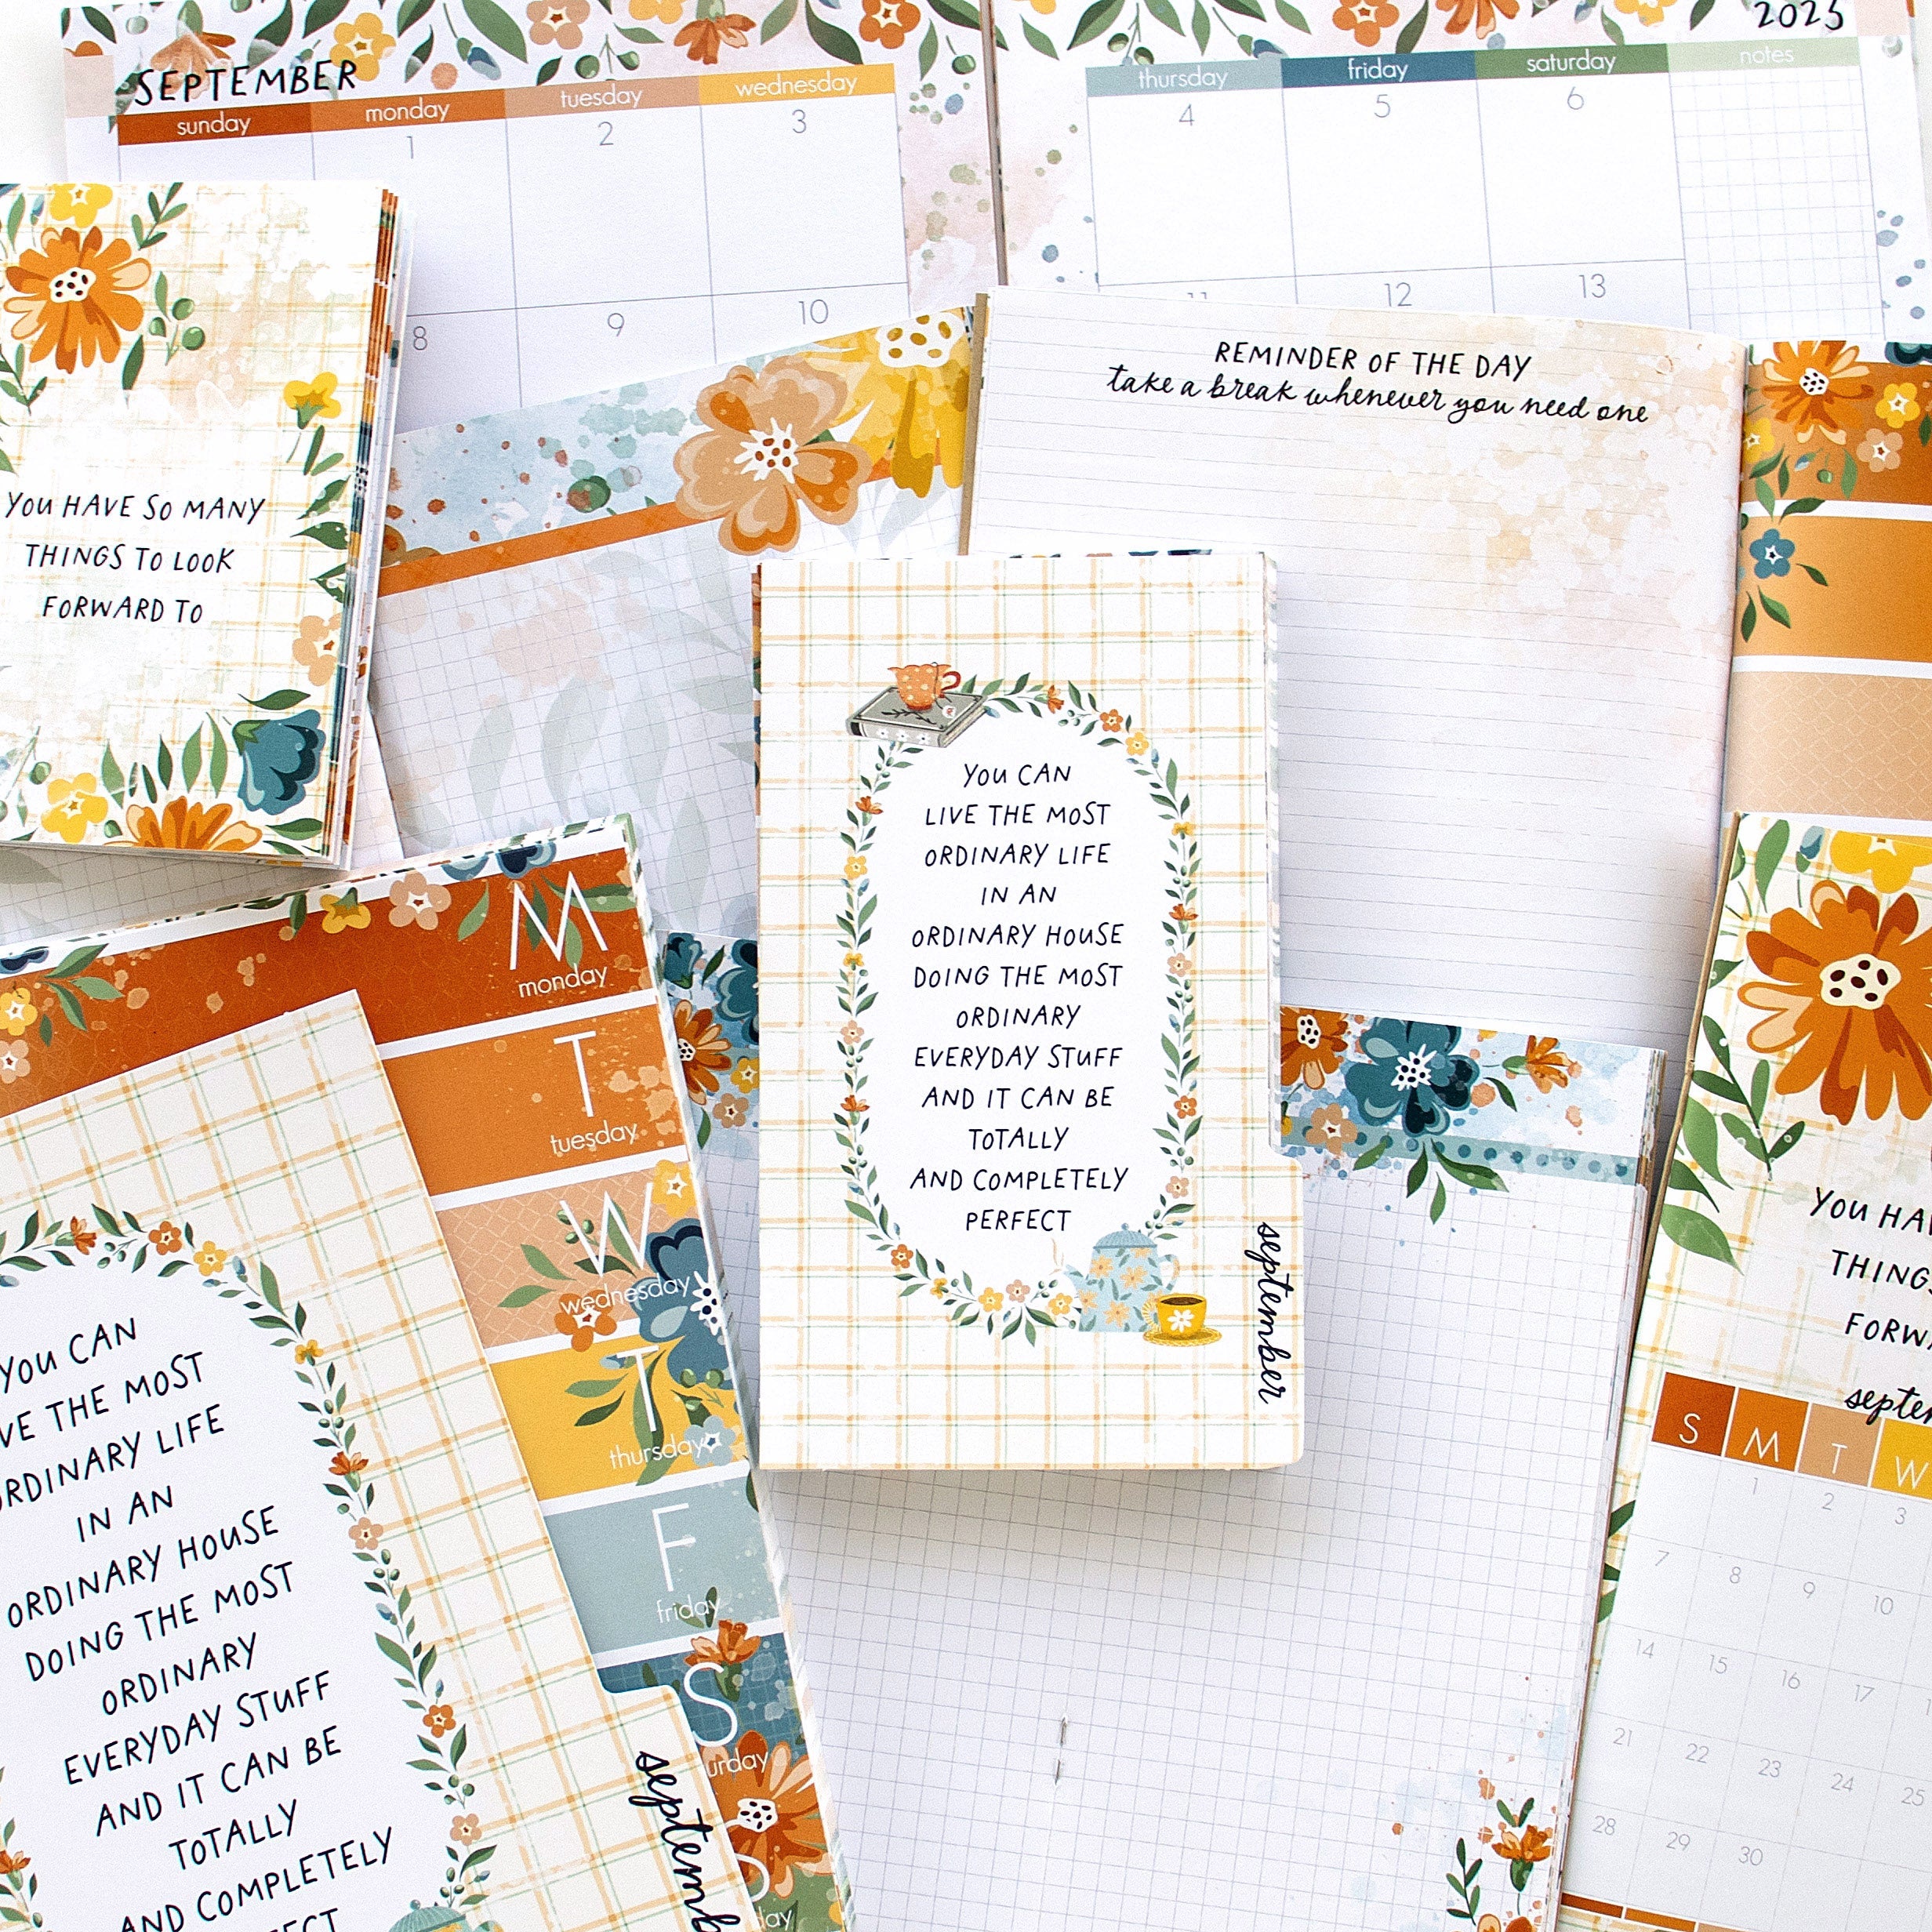 SEPTEMBER
sunday
monday
tuesday
wednesday
1
2
3
8
9
10
2025
thursday
friday
saturday
notes
4
5
6
11
12
13
YOU HAVE SO MANY
THINGS TO LOOK
FORWARD TO
REMINDER OF THE DAY
take a break whenever you need one
YOU CAN
LIVE THE MOST
ORDINARY LIFE
IN AN
ORDINARY HOUSE
DOING THE MOST
ORDINARY
EVERYDAY STUFF
AND IT CAN BE
TOTALLY
AND COMPLETELY
PERFECT
september
M
monday
T
tuesday
W
wednesday
T
thursday
F
friday
S
urday
S
day
YOU CAN
VE THE MOST
ORDINARY LIFE
IN AN
ORDINARY HOUSE
DOING THE MOST
ORDINARY
EVERYDAY STUFF
AND IT CAN BE
TOTALLY
AND COMPLETELY
FECT
septemb
YOU HA
THING
FORW
septe
S M T W
1 2 3
7 8 9 10
14 15 16 17
21 22 23 24 25
28 29 30